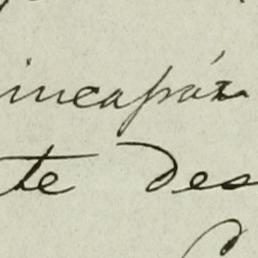 incapáz
te des